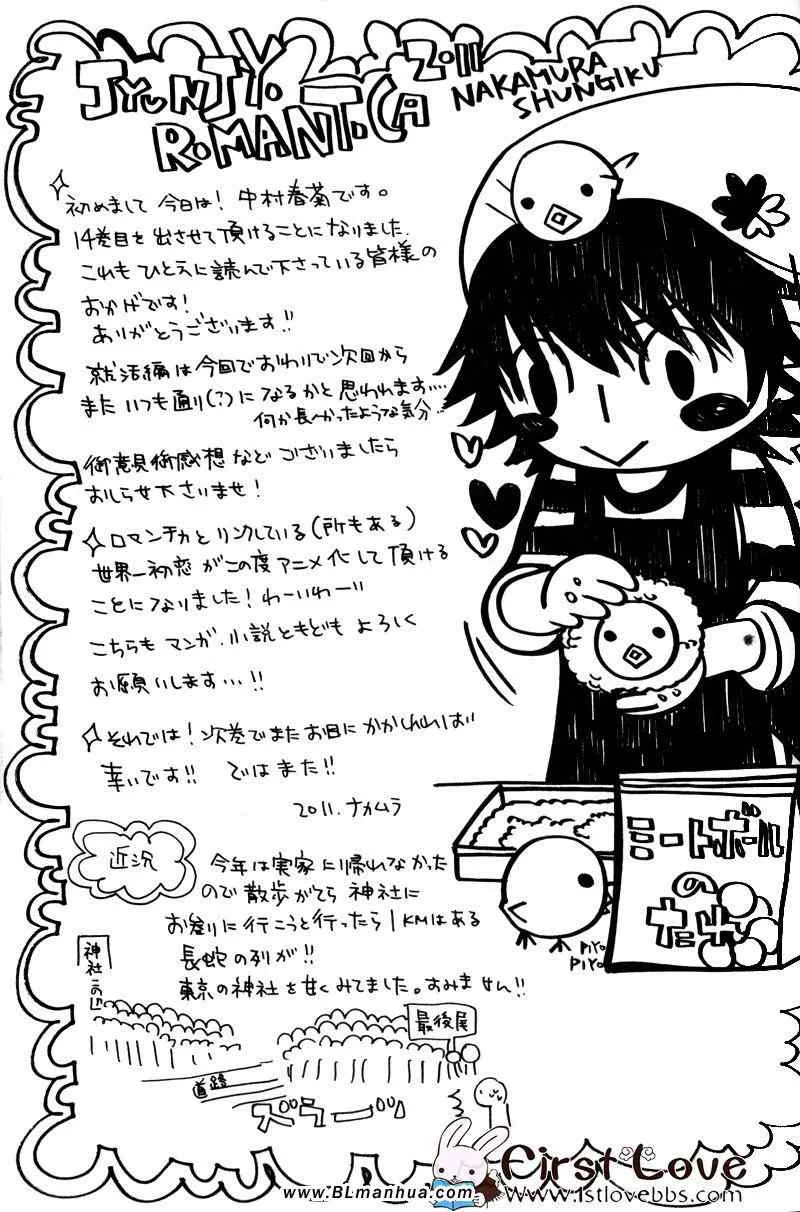 JYUNJYO
ROMANTICA
2011
NAKAMURA
SHUNGIKU
初めまして 今日は! 中村春菊です。
14巻目を出させて頂けることになりました.
これもひとえに読んで下さっている皆様の
おかげです!
ありがとうございます!!
就活編は今回でおわりで次回から
また いつも通り(?)になるかと思われます….
何か長〜かったような気分…
御意見御感想などございましたら
おしらせ下さいませ!
ロマンチカとリンクしている(所もある)
世界一初恋がこの度アニメ化して頂ける
ことになりました! わーいわーい
こちらも マンガ.小説ともども よろしく
お願いします…!!
それでは! 次巻でまたお目にかかれれば
幸いです!! ではまた!!
2011. ナカムラ
近況
今年は実家に帰れなかった
ので散歩がてら 神社に
お参りに行こうと行ったら1KMはある
長蛇の列が!!
東京の神社を甘くみてました。すみません!!
神社
最後尾
道路
ズラーッ
ミートボール
の
PIYO
PIYO
First Love
www.BLmanhua.com
www.1stlovebbs.com